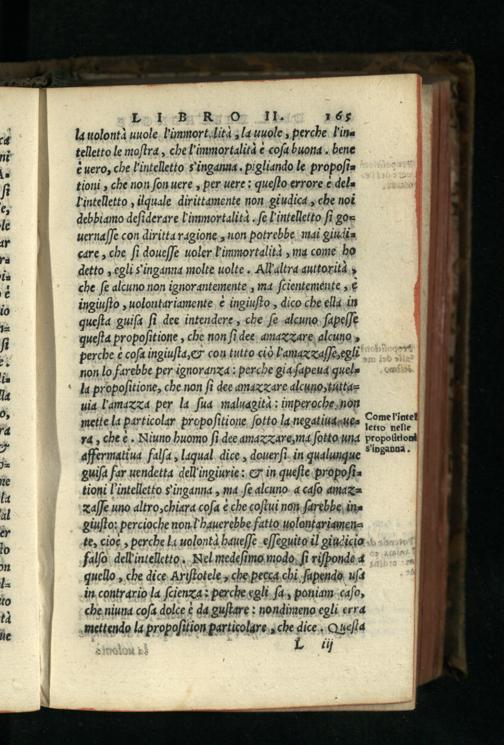 LIBRO II. 165
la uolontà uuole l'immort.lità, la uuole, perche l'in=
telletto le mostra, che l'immortalità è cosa buona. bene
è uero, che l'intelletto s'inganna. pigliando le proposi=
tioni, che non son uere, per uere: questo errore è del=
l'intelletto, ilquale dirittamente non giudica, che noi
debbiamo desiderare l'immortalità. se l'intelletto si go=
uernasse con diritta ragione, non potrebbe mai giudi=
care, che si douesse uoler l'immortalità, ma come ho
detto, egli s'inganna molte uolte. All'altra auttorità,
che se alcuno non ignorantemente, ma scientemente, è
ingiusto, uolontariamente è ingiusto, dico che ella in
questa guisa si dee intendere, che se alcuno sapesse
questa propositione, che non si dee amazzare alcuno,
perche è cosa ingiusta, & con tutto ciò l'amazzasse, egli
non lo farebbe per ignoranza: perche gia sapeua quel=
la propositione, che non si dee amazzare alcuno, tutta=
uia l'amazza per la sua maluagità: imperoche non
mette la particolar propositione sotto la negatiua ue=
ra, che è. Niuno huomo si dee amazzare, ma sotto una
affermatiua falsa, laqual dice, douersi in qualunque
guisa far uendetta dell'ingiurie: & in queste proposi=
tioni l'intelletto s'inganna, ma se alcuno a caso amaz=
zasse uno altro, chiara cosa è che costui non sarebbe in=
giusto: percioche non l'hauerebbe fatto uolontariamen=
te, cioè, perche la uolontà hauesse esseguito il giudicio
falso dell'intelletto. Nel medesimo modo si risponde a
quello, che dice Aristotele, che pecca chi sapendo usa
in contrario la scienza: perche egli sa, poniam caso,
che niuna cosa dolce è da gustare: nondimeno egli erra
mettendo la proposition particolare, che dice. Questa
L iij
Come l'intel
letto nelle
propositioni
s'inganna.